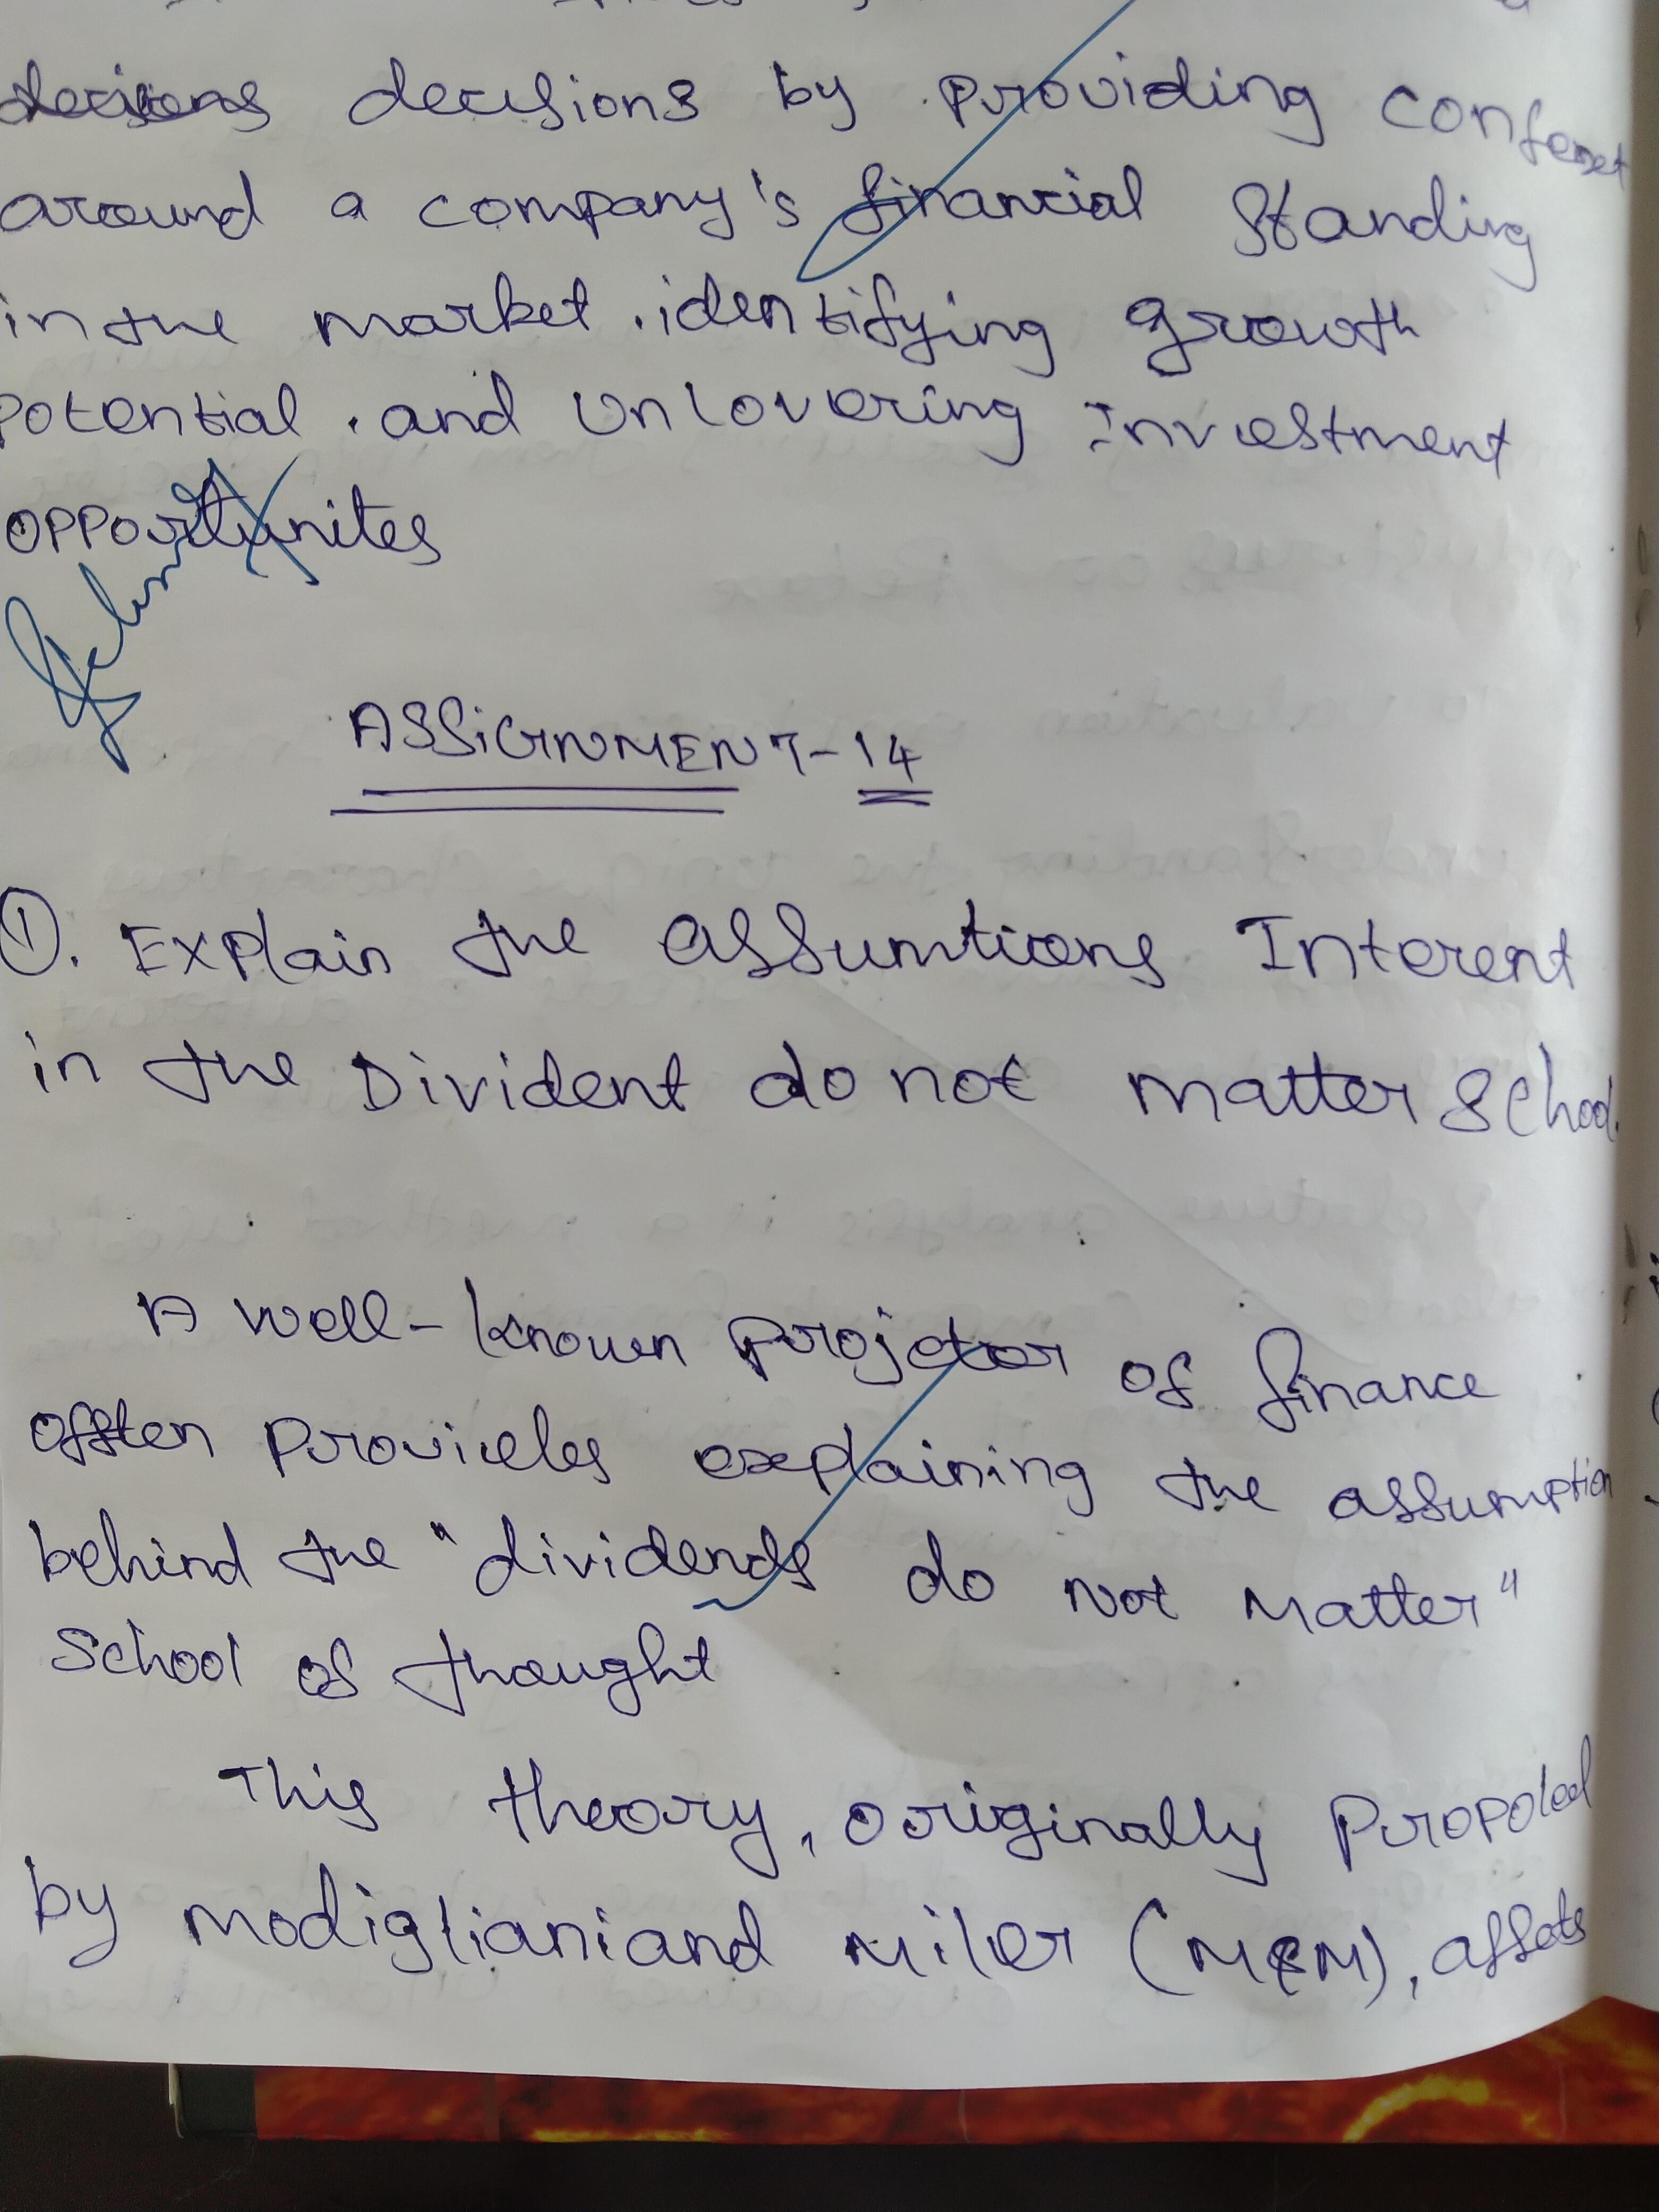 decisions decisions by providing context
around a company's financial standing
in the market. identifying growth
potential. and Unlovering Investment
opportunites
ASSiGNMENT-14
①. Explain the assumtions Interent
in the Divident do not matter school.
A well-known projctor of finance
offten provides explaining the assumption
behind the "dividends do not matter"
School of thought
This theory, originally propoled
by modiglianiand Miler (M&M), assets